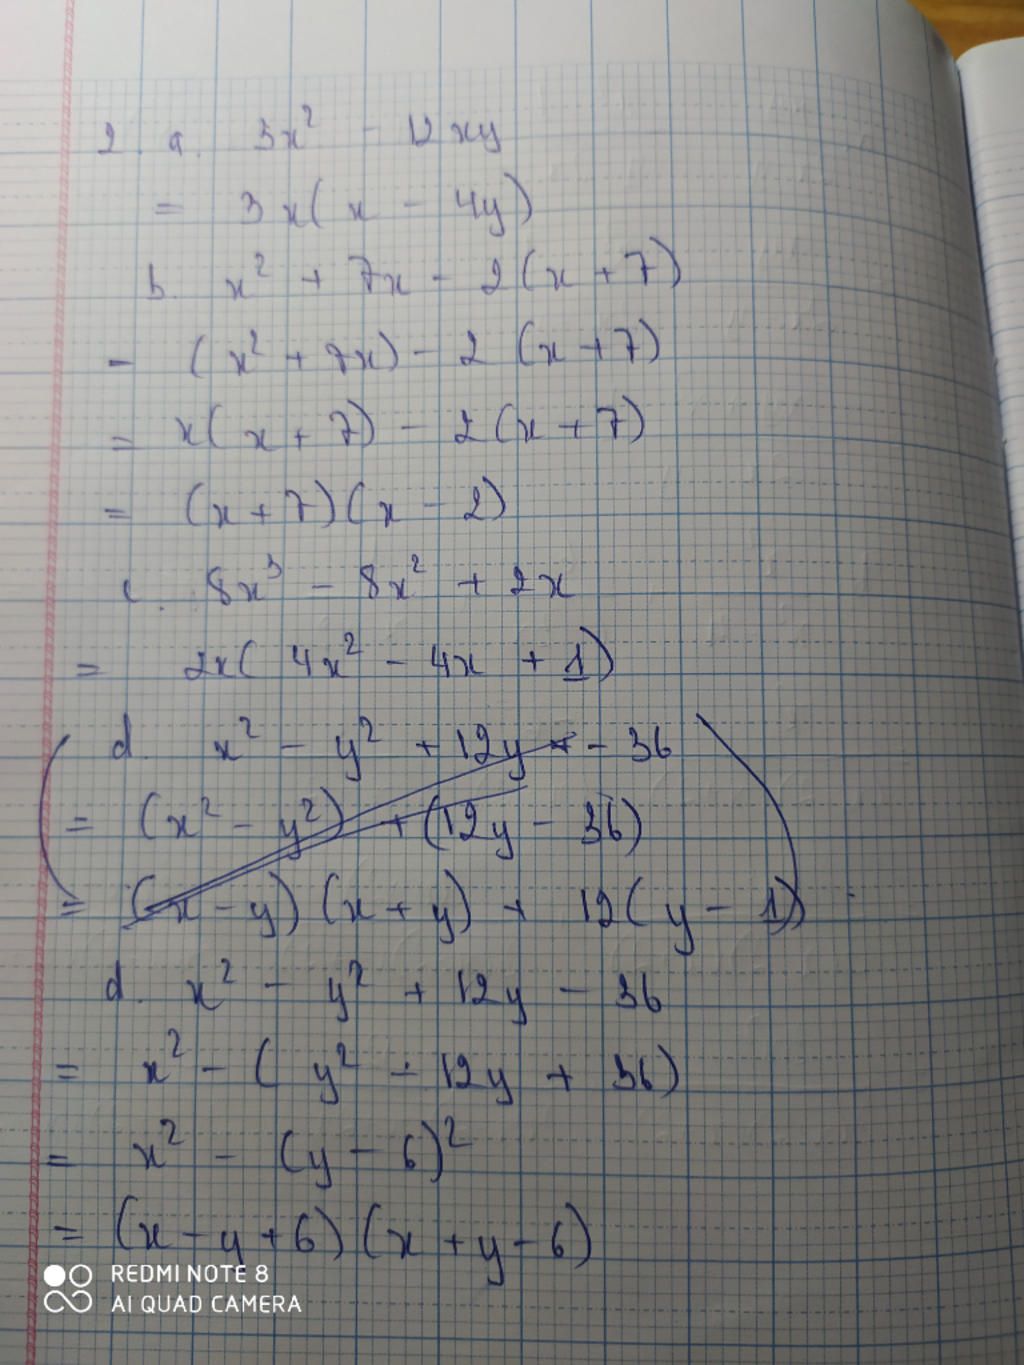 2. a. 3x² - 12xy
= 3x(x - 4y)
b. x² + 7x - 2(x + 7)
= (x² + 7x) - 2(x + 7)
= x(x + 7) - 2(x + 7)
= (x + 7)(x - 2)
c. 8x³ - 8x² + 2x
= 2x(4x² - 4x + 1)
d. x² - y² + 12y - 36
= (x² - y²) + (12y - 36)
= (x - y)(x + y) + 12(y - 1)
d. x² - y² + 12y - 36
= x² - (y² - 12y + 36)
= x² - (y - 6)²
= (x - y + 6)(x + y - 6)
REDMI NOTE 8
AI QUAD CAMERA